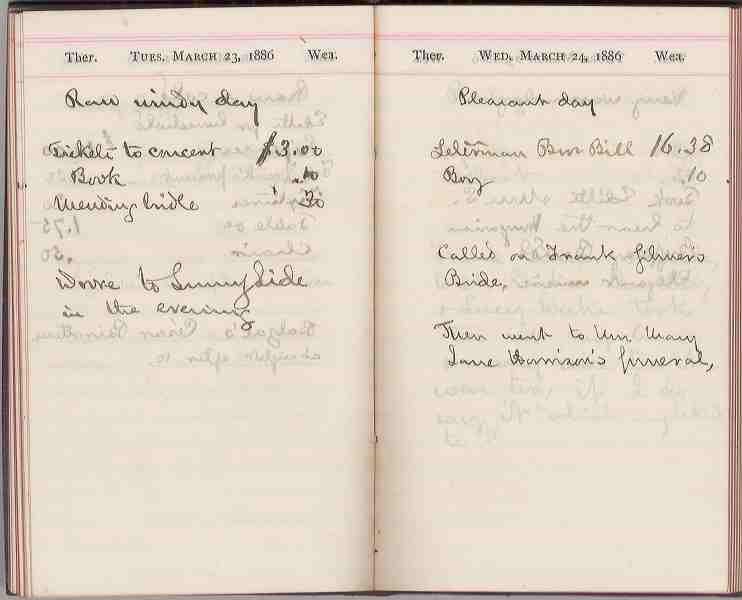 Ther. TUES. MARCH 23, 1886 Wea.
Raw windy day
Tickets to concert $3.00
Book .10
Mending bridle 30
Drove to Sunnyside
in the evening
Ther. WED. MARCH 24, 1886 Wea.
Pleasant day
Bill 16.38
Boy .10
Called on Frank Gilmer's
Bride,
Then went to Mrs. Mary
Jane Harrison's funeral,